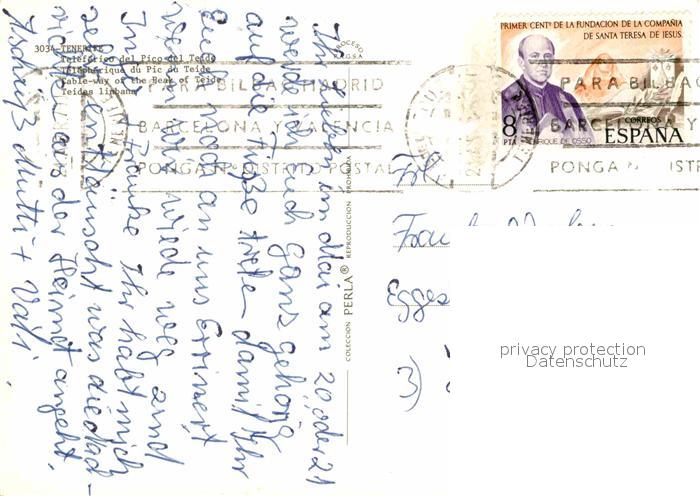 3034-TENERIFE
Teleférico del Pico del Teide
Téléphérique du Pic du Teide
Cable-way of the Peak of Teide
Teides linbana
PRIMER CENTº DE LA FUNDACION DE LA COMPAÑIA
DE SANTA TERESA DE JESUS.
8 PTA
ENRIQUE DE OSSO
CORREOS
ESPAÑA
PARA BILBAO MADRID
BARCELONA Y VALENCIA
PONGAN DISTRITO POSTAL
PARA BILBAO
BARCELONA Y
PONGAN DISTR
COLECCION PERLA® REPRODUCCION PROHIBIDA
Ihr Lieben im Mai am 20. oder 21
werde ich Euch ganz gehörig
auf die Füße treten damit Ihr
Euch mal an uns Erinnert
wieder weg sind
Ihr habt mich
sehr enttäuscht was die Nach-
richten aus der Heimat angeht.
Tschüß Mutti + Vati.
Frl.
Egges
3)
privacy protection
Datenschutz